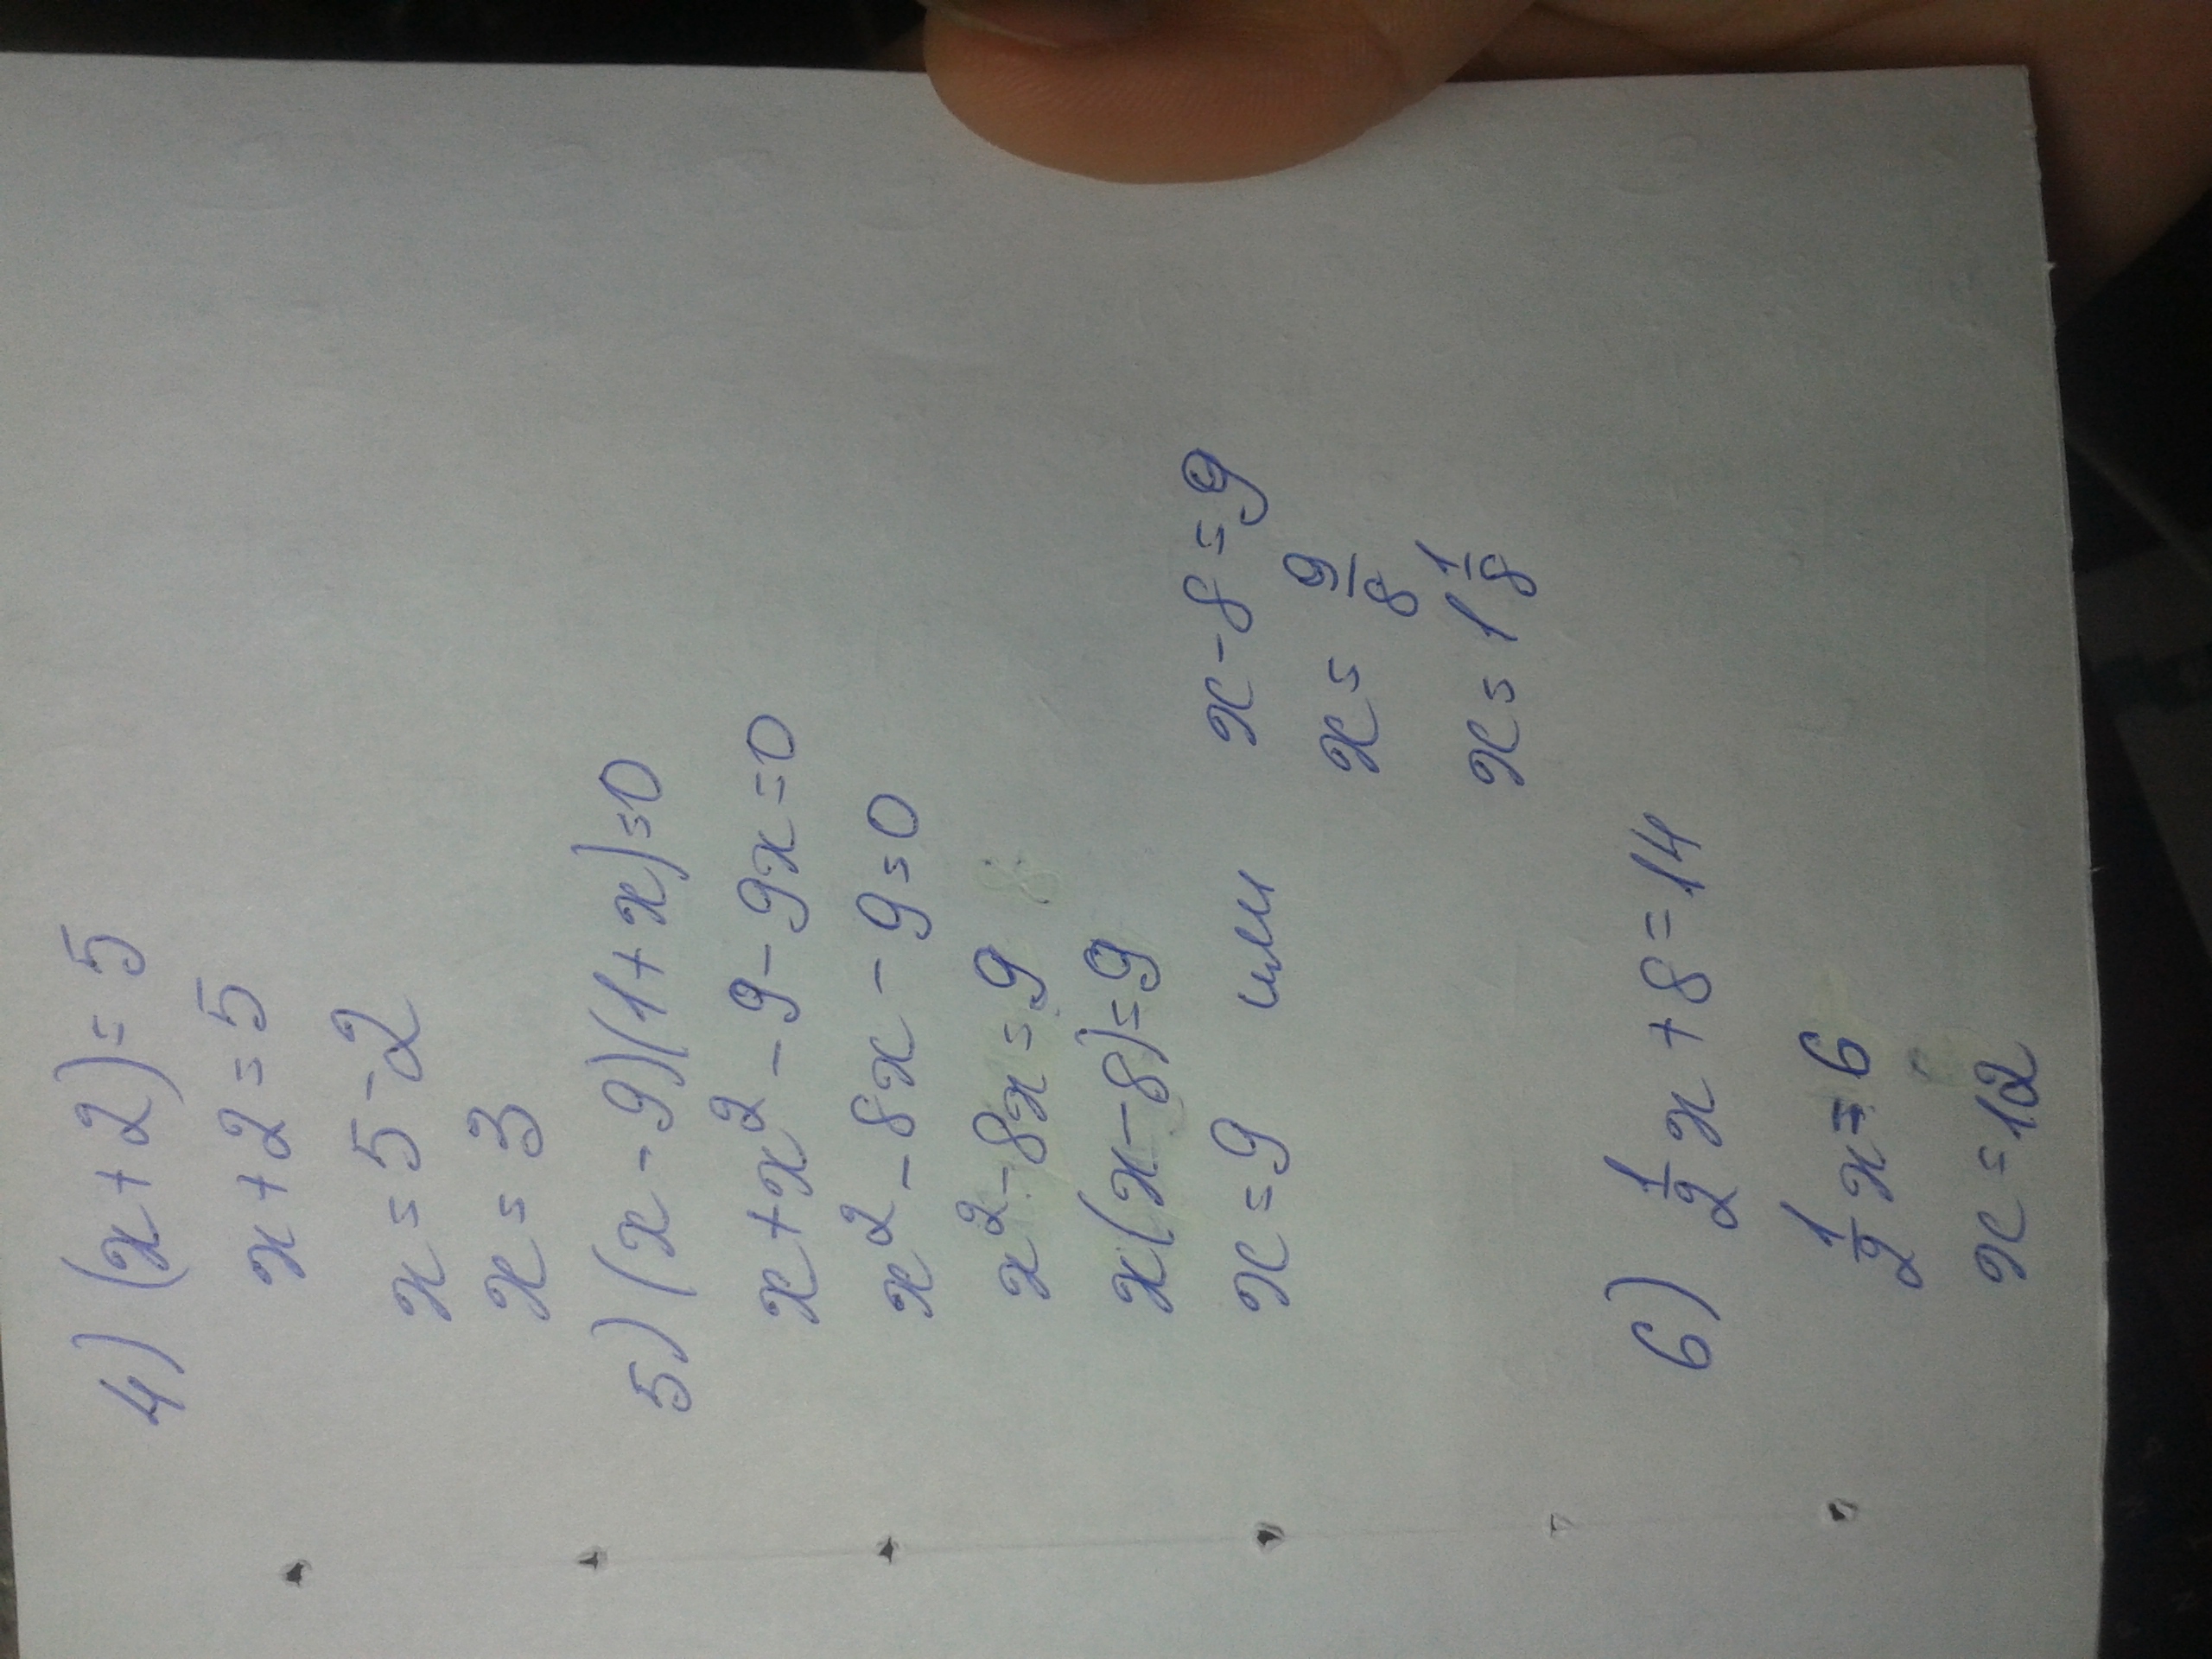 4) (x+2)=5
x+2=5
x=5-2
x=3
5) (x-9)(1+x)=0
x+x²-9-9x=0
x²-8x-9=0
x²-8x=9
x(x-8)=9
x=9 или x-8=9
x=9/8
x=1 1/8
6) 1/2 x+8=14
1/2 x=6
x=12